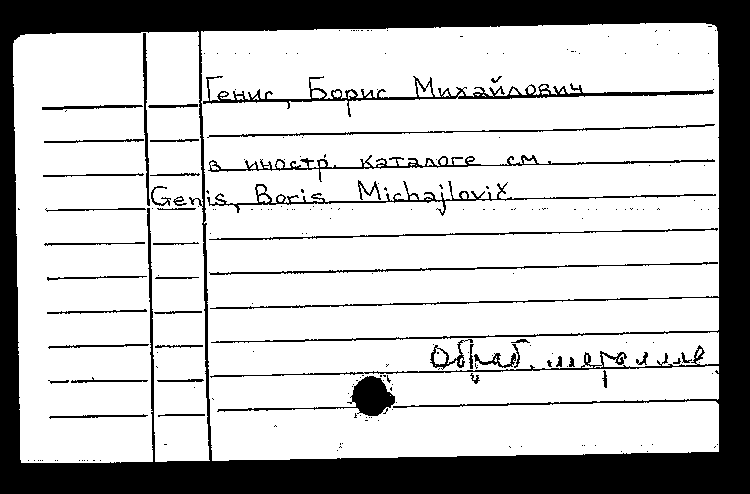 Генис, Борис Михайлович
в иностр. каталоге см.
Genis, Boris Michajlovič
Обраб. металлов